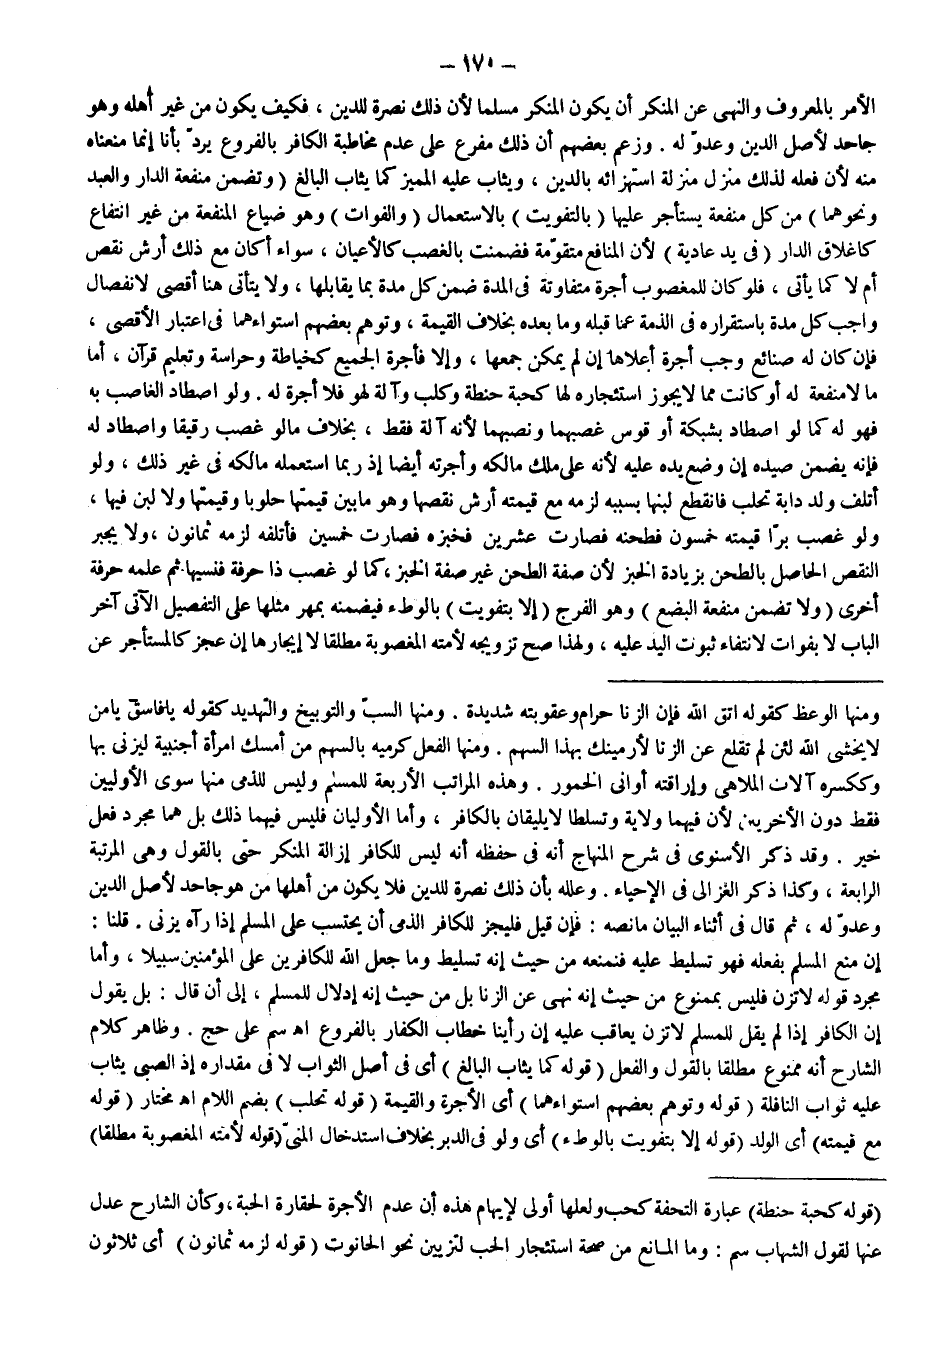 – ١٧٠ –
الأمر بالمعروف والنهى عن المنكر أن يكون المنكر مسلما لأن ذلك نصرة للدين ، فكيف يكون من غير أهله وهو
جاحد لأصل الدين وعدوّ له . وزعم بعضهم أن ذلك مفرع على عدم مخاطبة الكافر بالفروع يردّ بأنا إنما منعناه
منه لأن فعله لذلك منزل منزلة استهزائه بالدين ، ويثاب عليه المميز كما يثاب البالغ ( وتضمن منفعة الدار والعبد
ونحوهما ) من كل منفعة يستأجر عليها ( بالتفويت ) بالاستعمال ( والفوات ) وهو ضياع المنفعة من غير انتفاع
كاغلاق الدار ( فى يد عادية ) لأن المنافع متقوّمة فضمنت بالغصب كالأعيان ، سواء أكان مع ذلك أرش نقص
أم لا كما يأتى ، فلو كان للمغصوب أجرة متفاوتة فى المدة ضمن كل مدة بما يقابلها ، ولا يتأتى هنا أقصى لانفصال
واجب كل مدة باستقراره فى الذمة عما قبله وما بعده بخلاف القيمة ، وتوهم بعضهم استواءهما فى اعتبار الأقصى ،
فإن كان له صنائع وجب أجرة أعلاها إن لم يمكن جمعها ، وإلا فأجرة الجميع كخياطة وحراسة وتعليم قرآن ، أما
ما لا منفعة له أو كانت مما لايجوز استئجاره لها كحبة حنطة وكلب وآلة لهو فلا أجرة له . ولو اصطاد الغاصب به
فهو له كما لو اصطاد بشبكة أو قوس غصبهما ونصبهما لأنه آلة فقط ، بخلاف مالو غصب رقيقا واصطاد له
فإنه يضمن صيده إن وضع يده عليه لأنه على ملك مالكه وأجرته أيضا إذ ربما استعمله مالكه فى غير ذلك ، ولو
أتلف ولد دابة تحلب فانقطع لبنها بسببه لزمه مع قيمته أرش نقصها وهو مابين قيمتها حلوبا وقيمتها ولا لبن فيها ،
ولو غصب برّا قيمته خمسون فطحنه فصارت عشرين فخبزه فصارت خمسين فأتلفه لزمه ثمانون ، ولا يجبر
النقص الحاصل بالطحن بزيادة الخبز لأن صفة الطحن غير صفة الخبز ، كما لو غصب ذا حرفة فنسيها ثم علمه حرفة
أخرى ( ولا تضمن منفعة البضع ) وهو الفرج ( إلا بتفويت ) بالوطء فيضمنه بمهر مثلها على التفصيل الآتى آخر
الباب لا بفوات لانتفاء ثبوت اليد عليه ، ولهذا صح تزويجه لأمته المغصوبة مطلقا لا إيجارها إن عجز كالمستأجر عن
ومنها الوعظ كقوله اتق الله فإن الزنا حرام وعقوبته شديدة . ومنها السبّ والتوبيخ والتهديد كقوله يافاسق يامن
لايخشى الله لئن لم تقلع عن الزنا لأرمينك بهذا السهم . ومنها الفعل كرميه بالسهم من أمسك امرأة أجنبية ليزنى بها
وككسره آلات الملاهى وإراقته أوانى الخمور . وهذه المراتب الأربعة للمسلم وليس للذمى منها سوى الأوليين
فقط دون الأخريين لأن فيهما ولاية وتسلطا لايليقان بالكافر ، وأما الأوليان فليس فيهما ذلك بل هما مجرد فعل
خير . وقد ذكر الأسنوى فى شرح المنهاج أنه فى حفظه أنه ليس للكافر إزالة المنكر حتى بالقول وهى المرتبة
الرابعة ، وكذا ذكر الغزالى فى الإحياء . وعلله بأن ذلك نصرة للدين فلا يكون من أهلها من هو جاحد لأصل الدين
وعدوّ له ، ثم قال فى أثناء البيان مانصه : فإن قيل فليجز للكافر الذمى أن يحتسب على المسلم إذا رآه يزنى . قلنا :
إن منع المسلم بفعله فهو تسليط عليه فنمنعه من حيث إنه تسليط وما جعل الله للكافرين على المؤمنين سبيلا ، وأما
مجرد قوله لاتزن فليس بممنوع من حيث إنه نهى عن الزنا بل من حيث إنه إدلال للمسلم ، إلى أن قال : بل يقول
إن الكافر إذا لم يقل للمسلم لاتزن يعاقب عليه إن رأينا خطاب الكفار بالفروع اه سم على حج . وظاهر كلام
الشارح أنه ممنوع مطلقا بالقول والفعل ( قوله كما يثاب البالغ ) أى فى أصل الثواب لا فى مقداره إذ الصبى يثاب
عليه ثواب النافلة ( قوله وتوهم بعضهم استواءهما ) أى الأجرة والقيمة ( قوله تحلب ) بضم اللام اه مختار ( قوله
مع قيمته) أى الولد (قوله إلا بتفويت بالوطء) أى ولو فى الدبر بخلاف استدخال المنىّ (قوله لأمته المغصوبة مطلقا)
(قوله كحبة حنطة) عبارة التحفة كحب ولعلها أولى لإيهام هذه أن عدم الأجرة لحقارة الحبة ، وكأن الشارح عدل
عنها لقول الشهاب سم : وما المانع من صحة استئجار الحب لتزيين نحو الحانوت ( قوله لزمه ثمانون ) أى ثلاثون